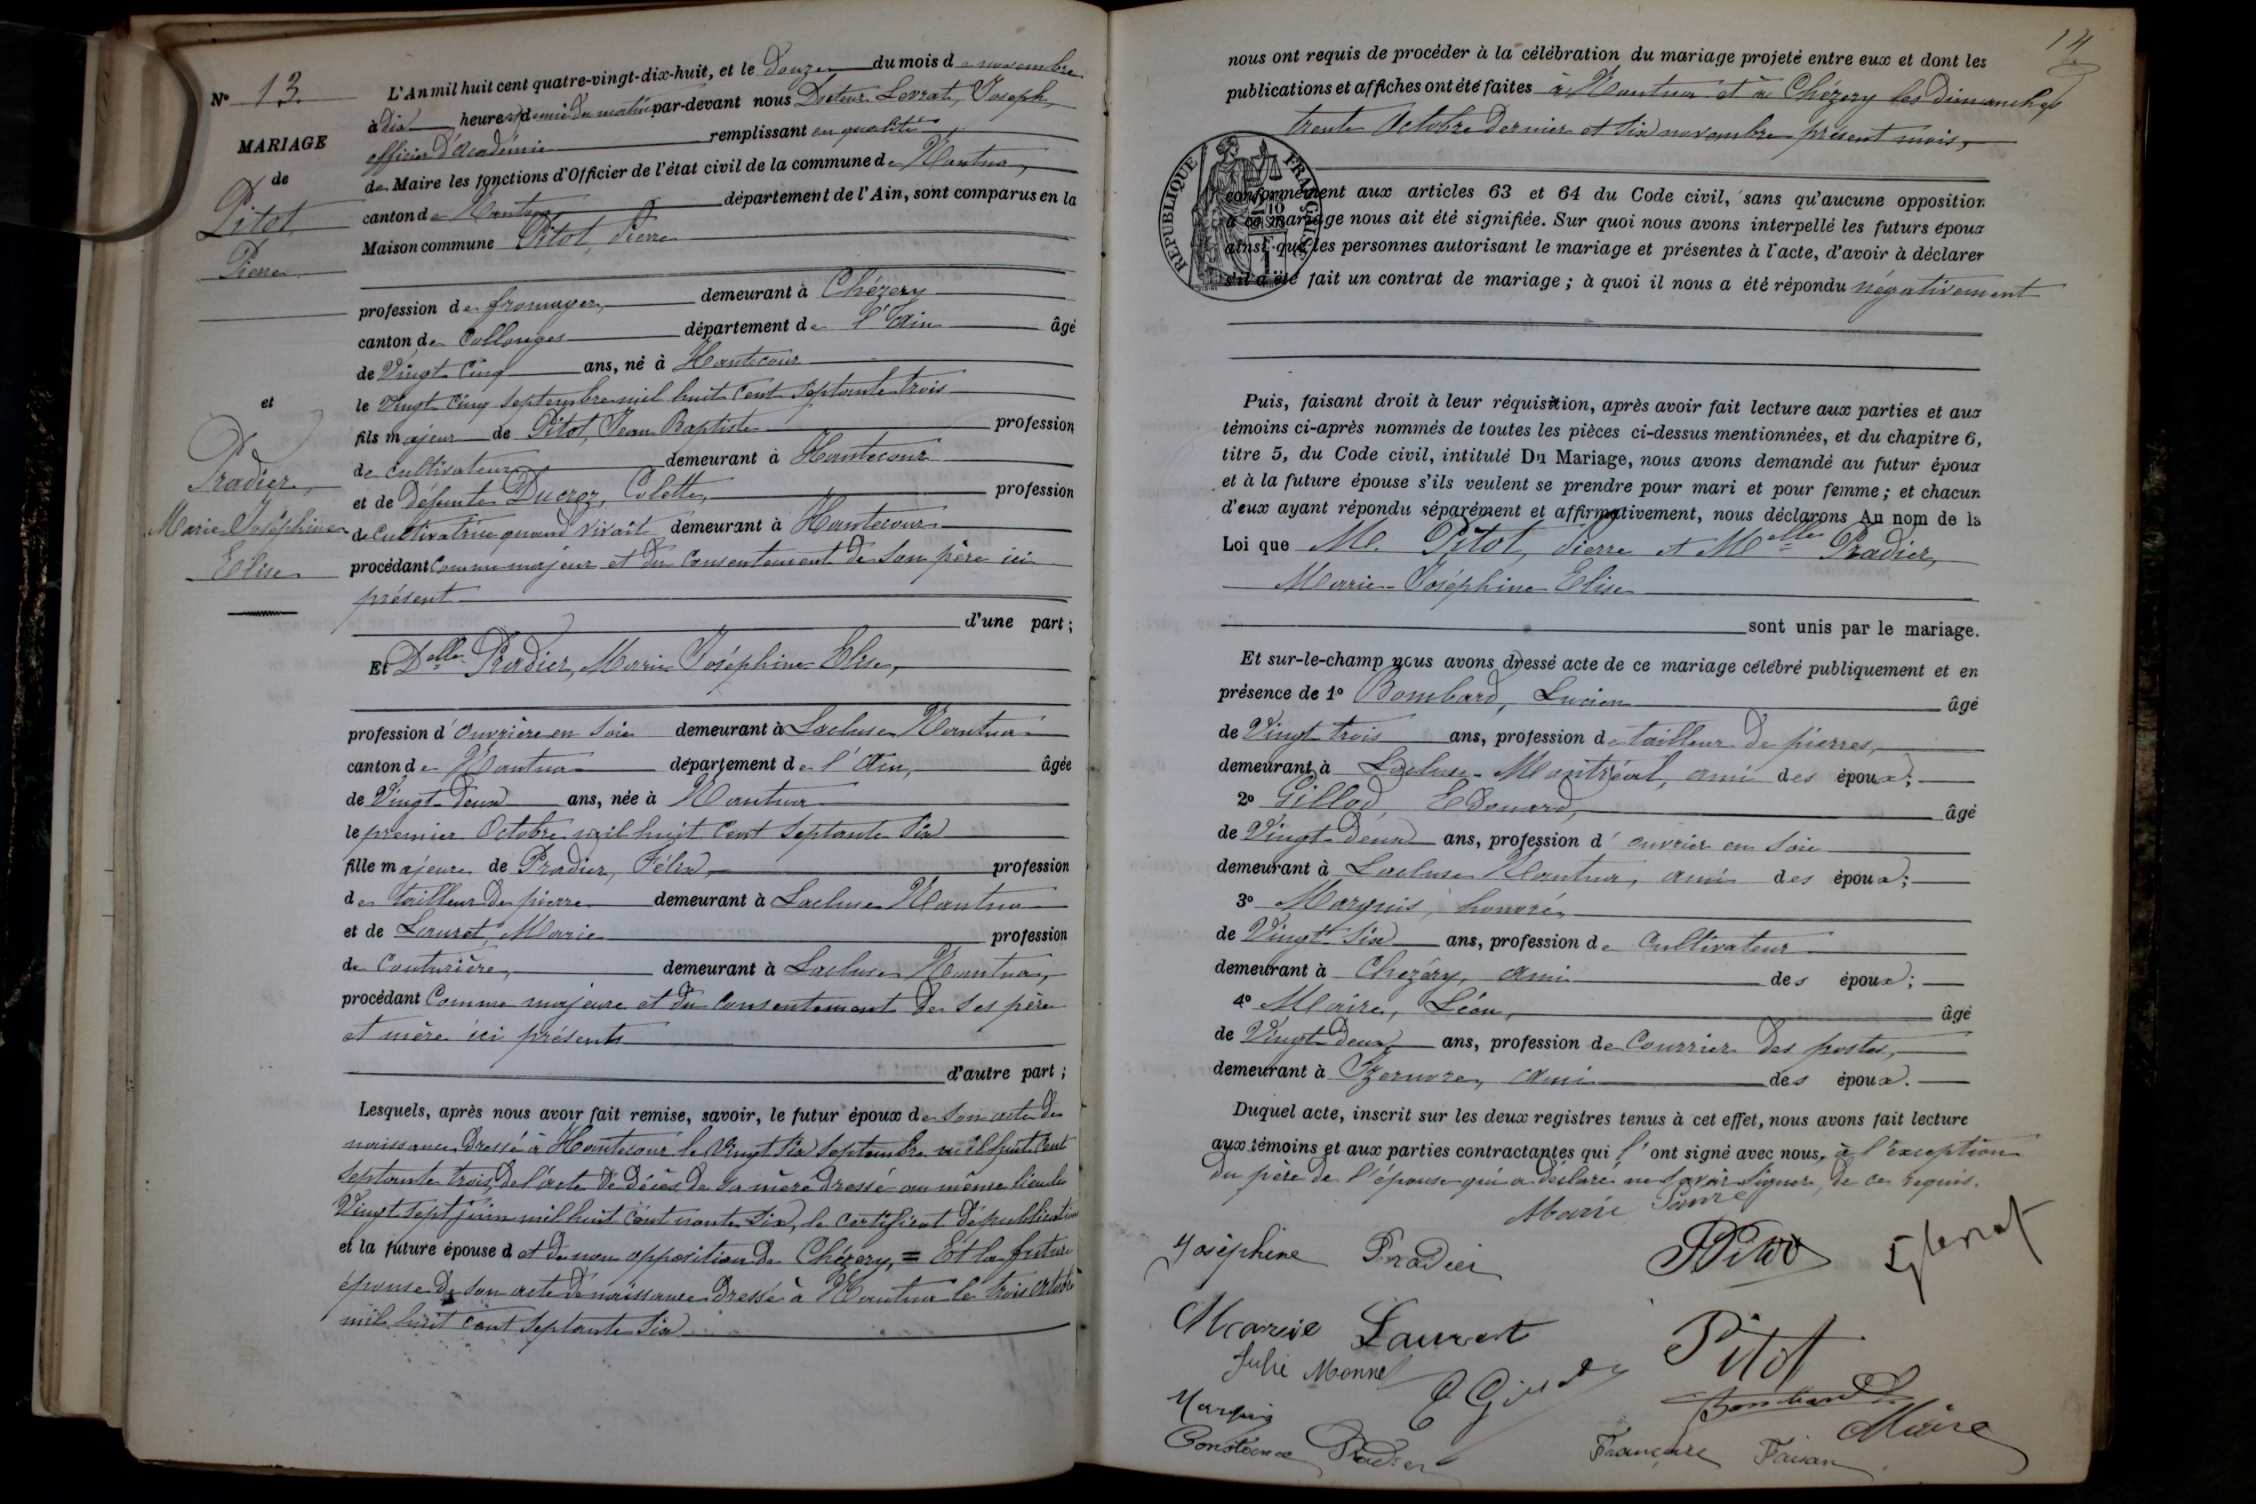 N° 13
MARIAGE
de
Pitot
Pierre
et
Pradier,
Marie Joséphine
Elise
L'An mil huit cent quatre-vingt-dix-huit, et le douze du mois de novembre
à dix heures et demie du matin par-devant nous Docteur Levrat, Joseph,
officier d'Académie remplissant en qualité
de Maire les fonctions d'Officier de l'état civil de la commune de Nantua,
canton de Nantua département de l'Ain, sont comparus en la
Maison commune Pitot, Pierre
profession de fromager, demeurant à Chézery
canton de Collonges département de l'Ain âgé
de Vingt cinq ans, né à Hautecour
le Vingt cinq septembre mil huit cent septante trois
fils majeur de Pitot, Jean Baptiste profession
de cultivateur demeurant à Hautecour
et de défunte Ducroz, Colette, profession
de cultivatrice quand vivait demeurant à Hautecour
procédant comme majeur et du consentement de son père ici
présent
d'une part;
Et Delle Pradier, Marie Joséphine Elise,
profession d'ouvrière en soie demeurant à Lacluse Nantua
canton de Nantua département de l'Ain, âgée
de Vingt-deux ans, née à Nantua
le premier Octobre mil huit cent septante six
fille majeure de Pradier, Félix profession
de tailleur de pierre demeurant à Lacluse Nantua
et de Lauret, Marie profession
de couturière, demeurant à Lacluse Nantua,
procédant comme majeure et du consentement de ses père
et mère ici présents
d'autre part;
Lesquels, après nous avoir fait remise, savoir, le futur époux de son acte de
naissance dressé à Hautecour le Vingt six septembre mil huit cent
septante trois, de l'acte de décès de sa mère dressé au même lieu le
Vingt sept juin mil huit cent nonante six, le certificat de publication
et la future épouse d et de non opposition de Chézery, = Et la future
épouse de son acte de naissance dressé à Nantua le trois octobre
mil huit cent septante six
14
nous ont requis de procéder à la célébration du mariage projeté entre eux et dont les
publications et affiches ont été faites à Nantua et à Chézery les dimanches
trente Octobre dernier et six novembre présent mois,
REPUBLIQUE FRANÇAISE
conformément aux articles 63 et 64 du Code civil, sans qu'aucune opposition
à ce mariage nous ait été signifiée. Sur quoi nous avons interpellé les futurs époux
ainsi que les personnes autorisant le mariage et présentes à l'acte, d'avoir à déclarer
s'il a été fait un contrat de mariage; à quoi il nous a été répondu négativement
Puis, faisant droit à leur réquisition, après avoir fait lecture aux parties et aux
témoins ci-après nommés de toutes les pièces ci-dessus mentionnées, et du chapitre 6,
titre 5, du Code civil, intitulé Du Mariage, nous avons demandé au futur époux
et à la future épouse s'ils veulent se prendre pour mari et pour femme; et chacun
d'eux ayant répondu séparément et affirmativement, nous déclarons Au nom de la
Loi que M. Pitot, Pierre et Melle Pradier,
Marie Joséphine Elise
sont unis par le mariage.
Et sur-le-champ nous avons dressé acte de ce mariage célébré publiquement et en
présence de 1° Bombard, Lucien âgé
de Vingt trois ans, profession de tailleur de pierres,
demeurant à Lacluse-Montréal, ami des époux;
2° Gillod, Edouard, âgé
de Vingt-deux ans, profession d'ouvrier en soie
demeurant à Lacluse Nantua, ami des époux;
3° Marquis, honoré,
de Vingt six ans, profession de Cultivateur
demeurant à Chezéry, ami des époux;
4° Maire, Léon, âgé
de Vingt-deux ans, profession de Courrier des postes,
demeurant à Izernore, ami des époux.
Duquel acte, inscrit sur les deux registres tenus à cet effet, nous avons fait lecture
aux témoins et aux parties contractantes qui l'ont signé avec nous, à l'exception
du père de l'épouse qui a déclaré ne savoir signer, de ce requis.
Marie
Joséphine Pradier PPitot
Marie Lauret Pitot
Julie Monnet
Marquis Bombard
Maire
Constance Pradier Françoise